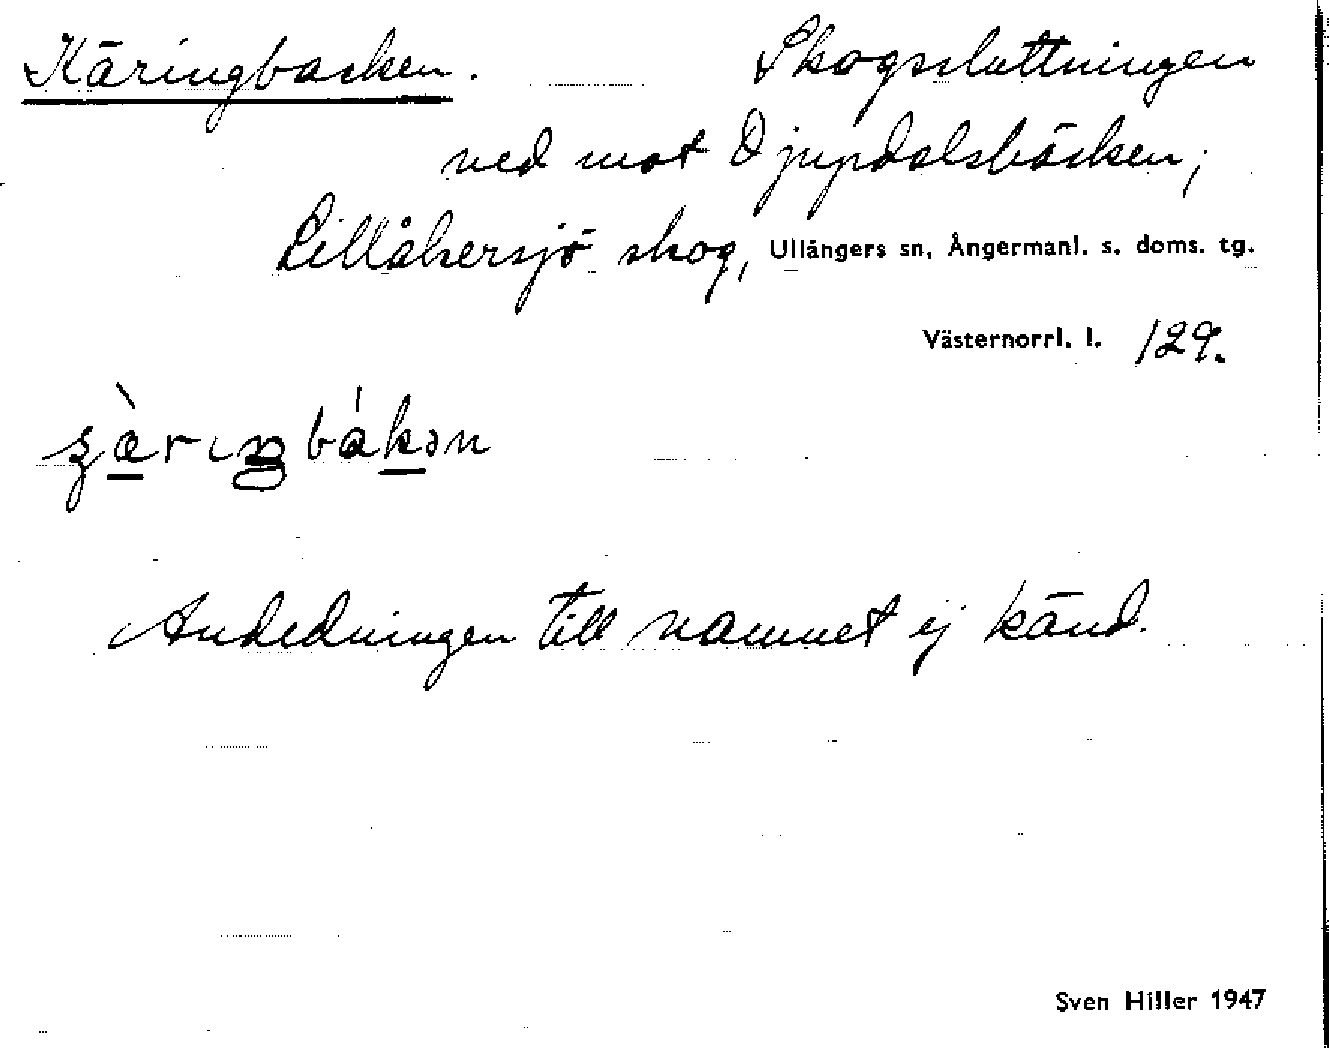 Käringbacken. Skogssluttningen
ned mot Djupdalsbäcken,
Lillåkersjö skog, Ullångers sn, Ångermanl. s. doms. tg.
Västernorrl. l. 129.
Anledningen till namnet ej känd.
Sven Hiller 1947